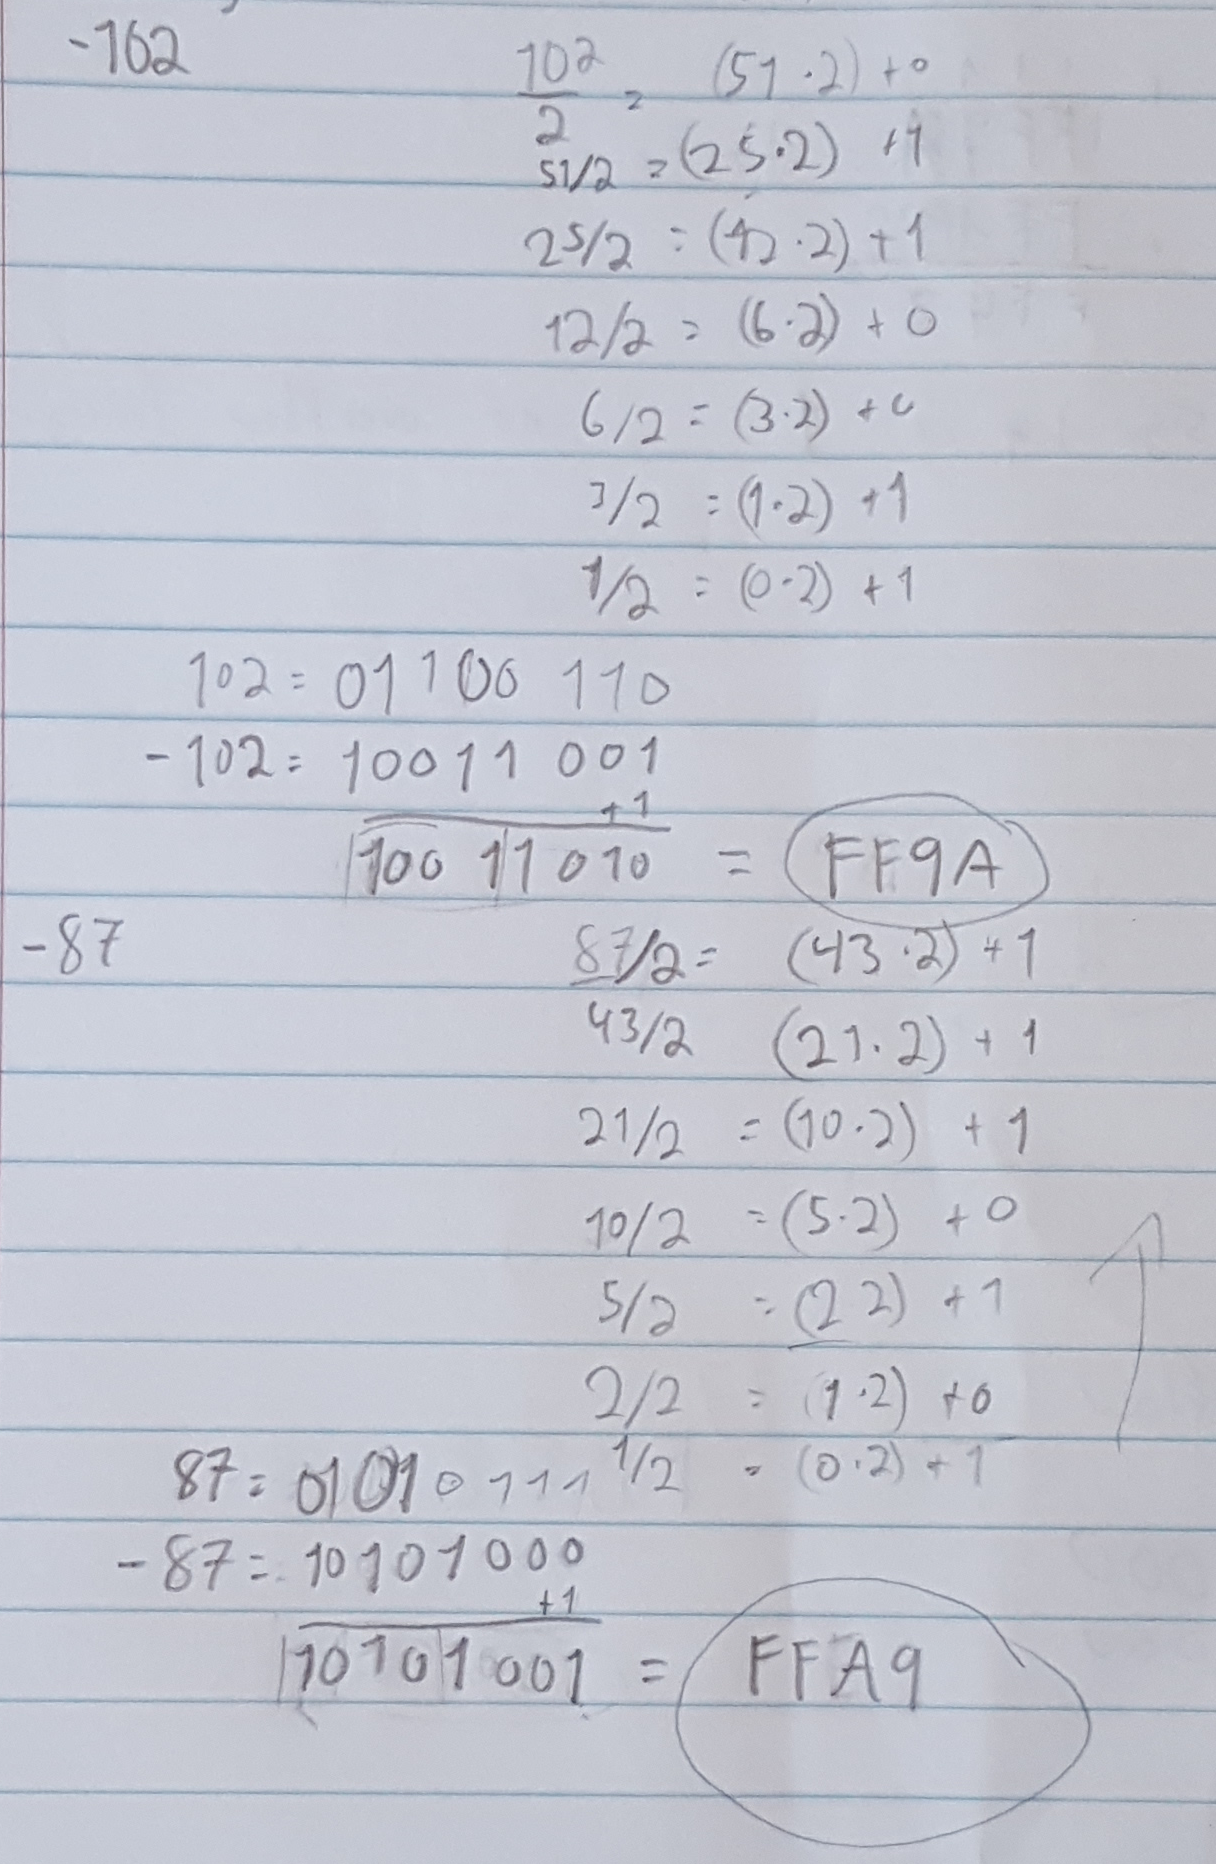 -102
102/2 = (51·2) +0
51/2 = (25·2) +1
25/2 = (12·2) +1
12/2 = (6·2) +0
6/2 = (3·2) +0
3/2 = (1·2) +1
1/2 = (0·2) +1
102 = 01100 110
-102 = 10011 001
+1
10011010 = FF9A
-87
87/2 = (43·2) +1
43/2 (21·2) +1
21/2 = (10·2) +1
10/2 = (5·2) +0
5/2 = (2 2) +1
2/2 = (1·2) +0
1/2 = (0·2) +1
87 = 01010111
-87 = 10101000
+1
10101001 = FFA9